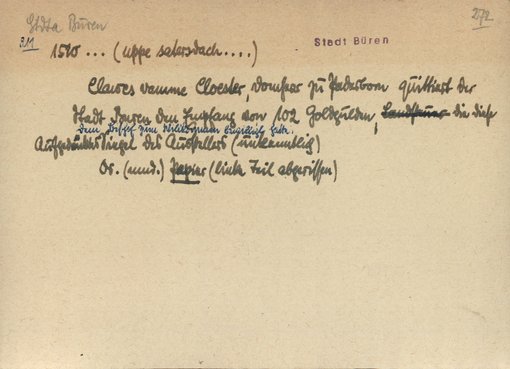 StdtA Büren
272
311
1510 ... (uppe satersdach ....)
Stadt Büren
Clawes vamme Cloester, Domherr zu Paderborn quittiert der
Stadt Büren den Empfang von 102 Goldgulden, Landsteuer die diese
dem Bischof zum
Aufgedrücktes Siegel des Ausstellers (unkenntlich)
Or. (mnd.) Papier (linke Teil abgerissen)